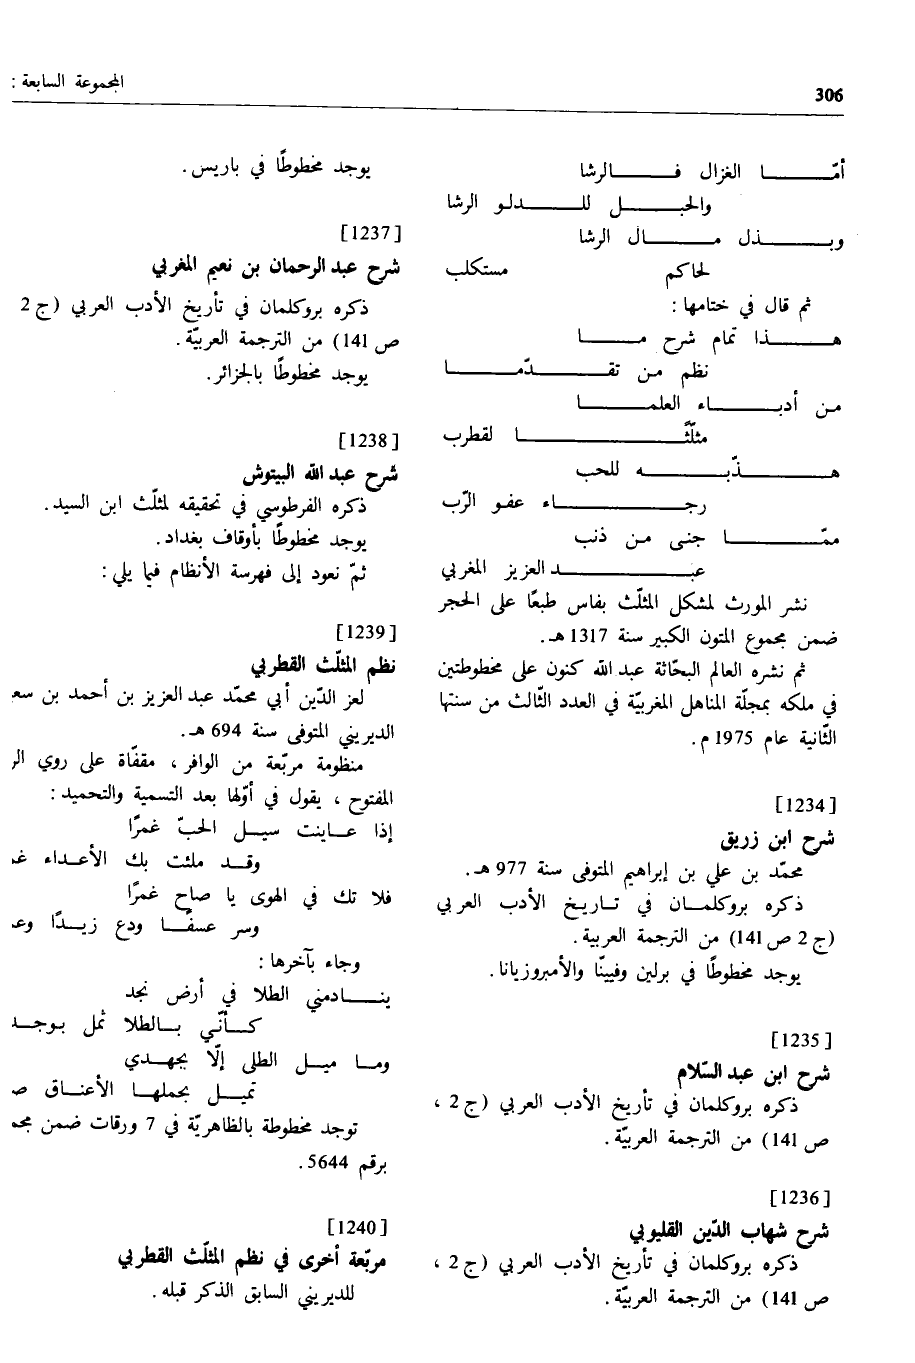 306
المجموعة السابعة :
أمّا الغزال فالرشا
والحبل للدلو الرشا
وبذل مال الرشا
لحاكم مستكلب
ثم قال في ختامها :
هذا تمام شرح ما
نظم من تقدّما
من أدباء العلما
مثلّثا لقطرب
هذّبه للحب
رجاء عفو الرّب
ممّا جنى من ذنب
عبد العزيز المغربي
نشر المورث لمشكل المثلّث بفاس طبعًا على الحجر
ضمن مجموع المتون الكبير سنة 1317 هـ.
ثم نشره العالم البحّاثة عبد الله كنون على مخطوطتين
في ملكه بمجلّة المناهل المغربيّة في العدد الثّالث من سنتها
الثّانية عام 1975 م.
[1234]
شرح ابن زريق
محمّد بن علي بن إبراهيم المتوفى سنة 977 هـ.
ذكره بروكلمـان في تـاريـخ الأدب العربي
(ج 2 ص 141) من الترجمة العربية.
يوجد مخطوطًا في برلين وفيينّا والأمبروزيانا.
[1235]
شرح ابن عبد السّلام
ذكره بروكلمان في تأريخ الأدب العربي (ج 2 ،
ص 141) من الترجمة العربيّة.
[1236]
شرح شهاب الدّين القليوبي
ذكره بروكلمان في تأريخ الأدب العربي (ج 2 ،
ص 141) من الترجمة العربيّة.
يوجد مخطوطًا في باريس.
[1237]
شرح عبد الرحمان بن نعيم المغربي
ذكره بروكلمان في تأريخ الأدب العربي (ج 2
ص 141) من الترجمة العربيّة.
يوجد مخطوطًا بالجزائر.
[1238]
شرح عبد الله البيتوش
ذكره الفرطوسي في تحقيقه لمثلّث ابن السيد.
يوجد مخطوطًا بأوقاف بغداد.
ثمّ نعود إلى فهرسة الأنظام فيما يلي :
[1239]
نظم المثلّث القطربي
لعز الدّين أبي محمّد عبد العزيز بن أحمد بن سع
الديريني المتوفى سنة 694 هـ.
منظومة مربّعة من الوافر ، مقفّاة على روي الر
المفتوح ، يقول في أوّلها بعد التسمية والتحميد :
إذا عـاينت سبـل الحبّ غمرًا
وقـد ملئت بك الأعـداء غم
فلا تك في الهوى يا صاح غمرًا
وسر عسفًـا ودع زيـدًا وعم
وجاء بآخرها :
ينـادمني الطلا في أرض نجد
كـأنّي بـالطلا ثمل بوجـد
ومـا ميـل الطلى إلّا بجهـدي
تميـل بحملهـا الأعنـاق ص
توجد مخطوطة بالظاهريّة في 7 ورقات ضمن مجم
برقم 5644.
[1240]
مربّعة أخرى في نظم المثلّث القطربي
للديريني السابق الذكر قبله.